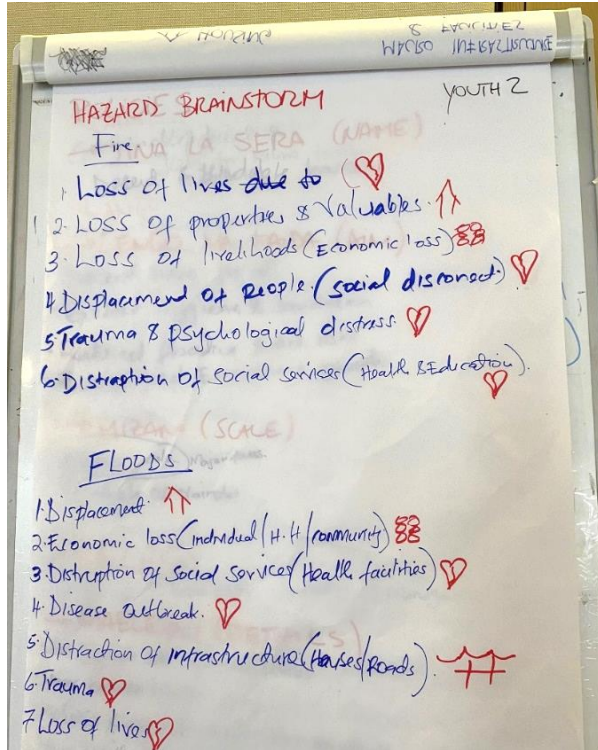 HAZARD BRAINSTORM
YOUTH 2
Fire
1. Loss of lives due to
2. Loss of properties & Valuables.
3. Loss of livelihoods (Economic loss)
4. Displacement of People. (Social disconect)
5. Trauma & Psychological distress.
6. Distraption of social services (Health & Education).
FLOODS
1. Displacement.
2. Economic loss (individual/H.H/community)
3. Distruption of Social Services (Health facilities)
4. Disease Outbreak.
5. Distraction of infrastructure (Houses/Roads).
6. Trauma
7. Loss of lives